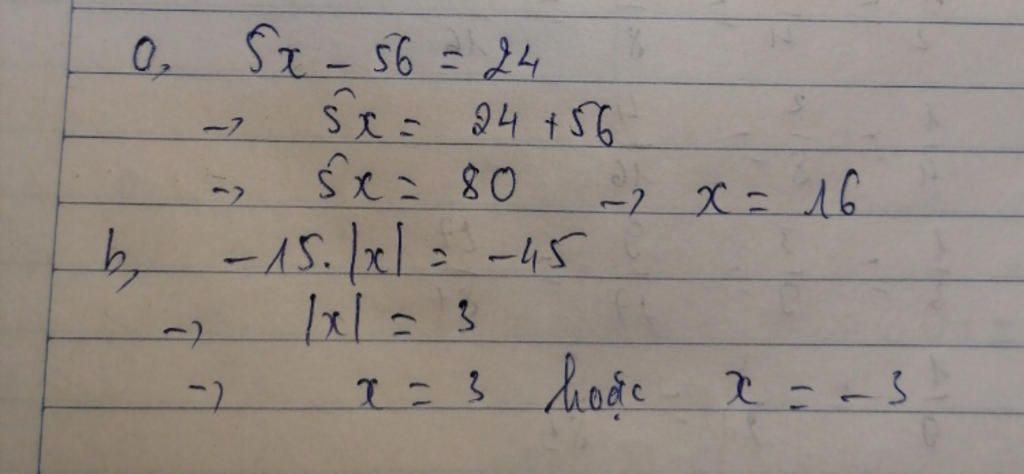 a, 5x - 56 = 24
→ 5x = 24 + 56
→ 5x = 80 → x = 16
b, -15. |x| = -45
→ |x| = 3
→ x = 3 hoặc x = -3